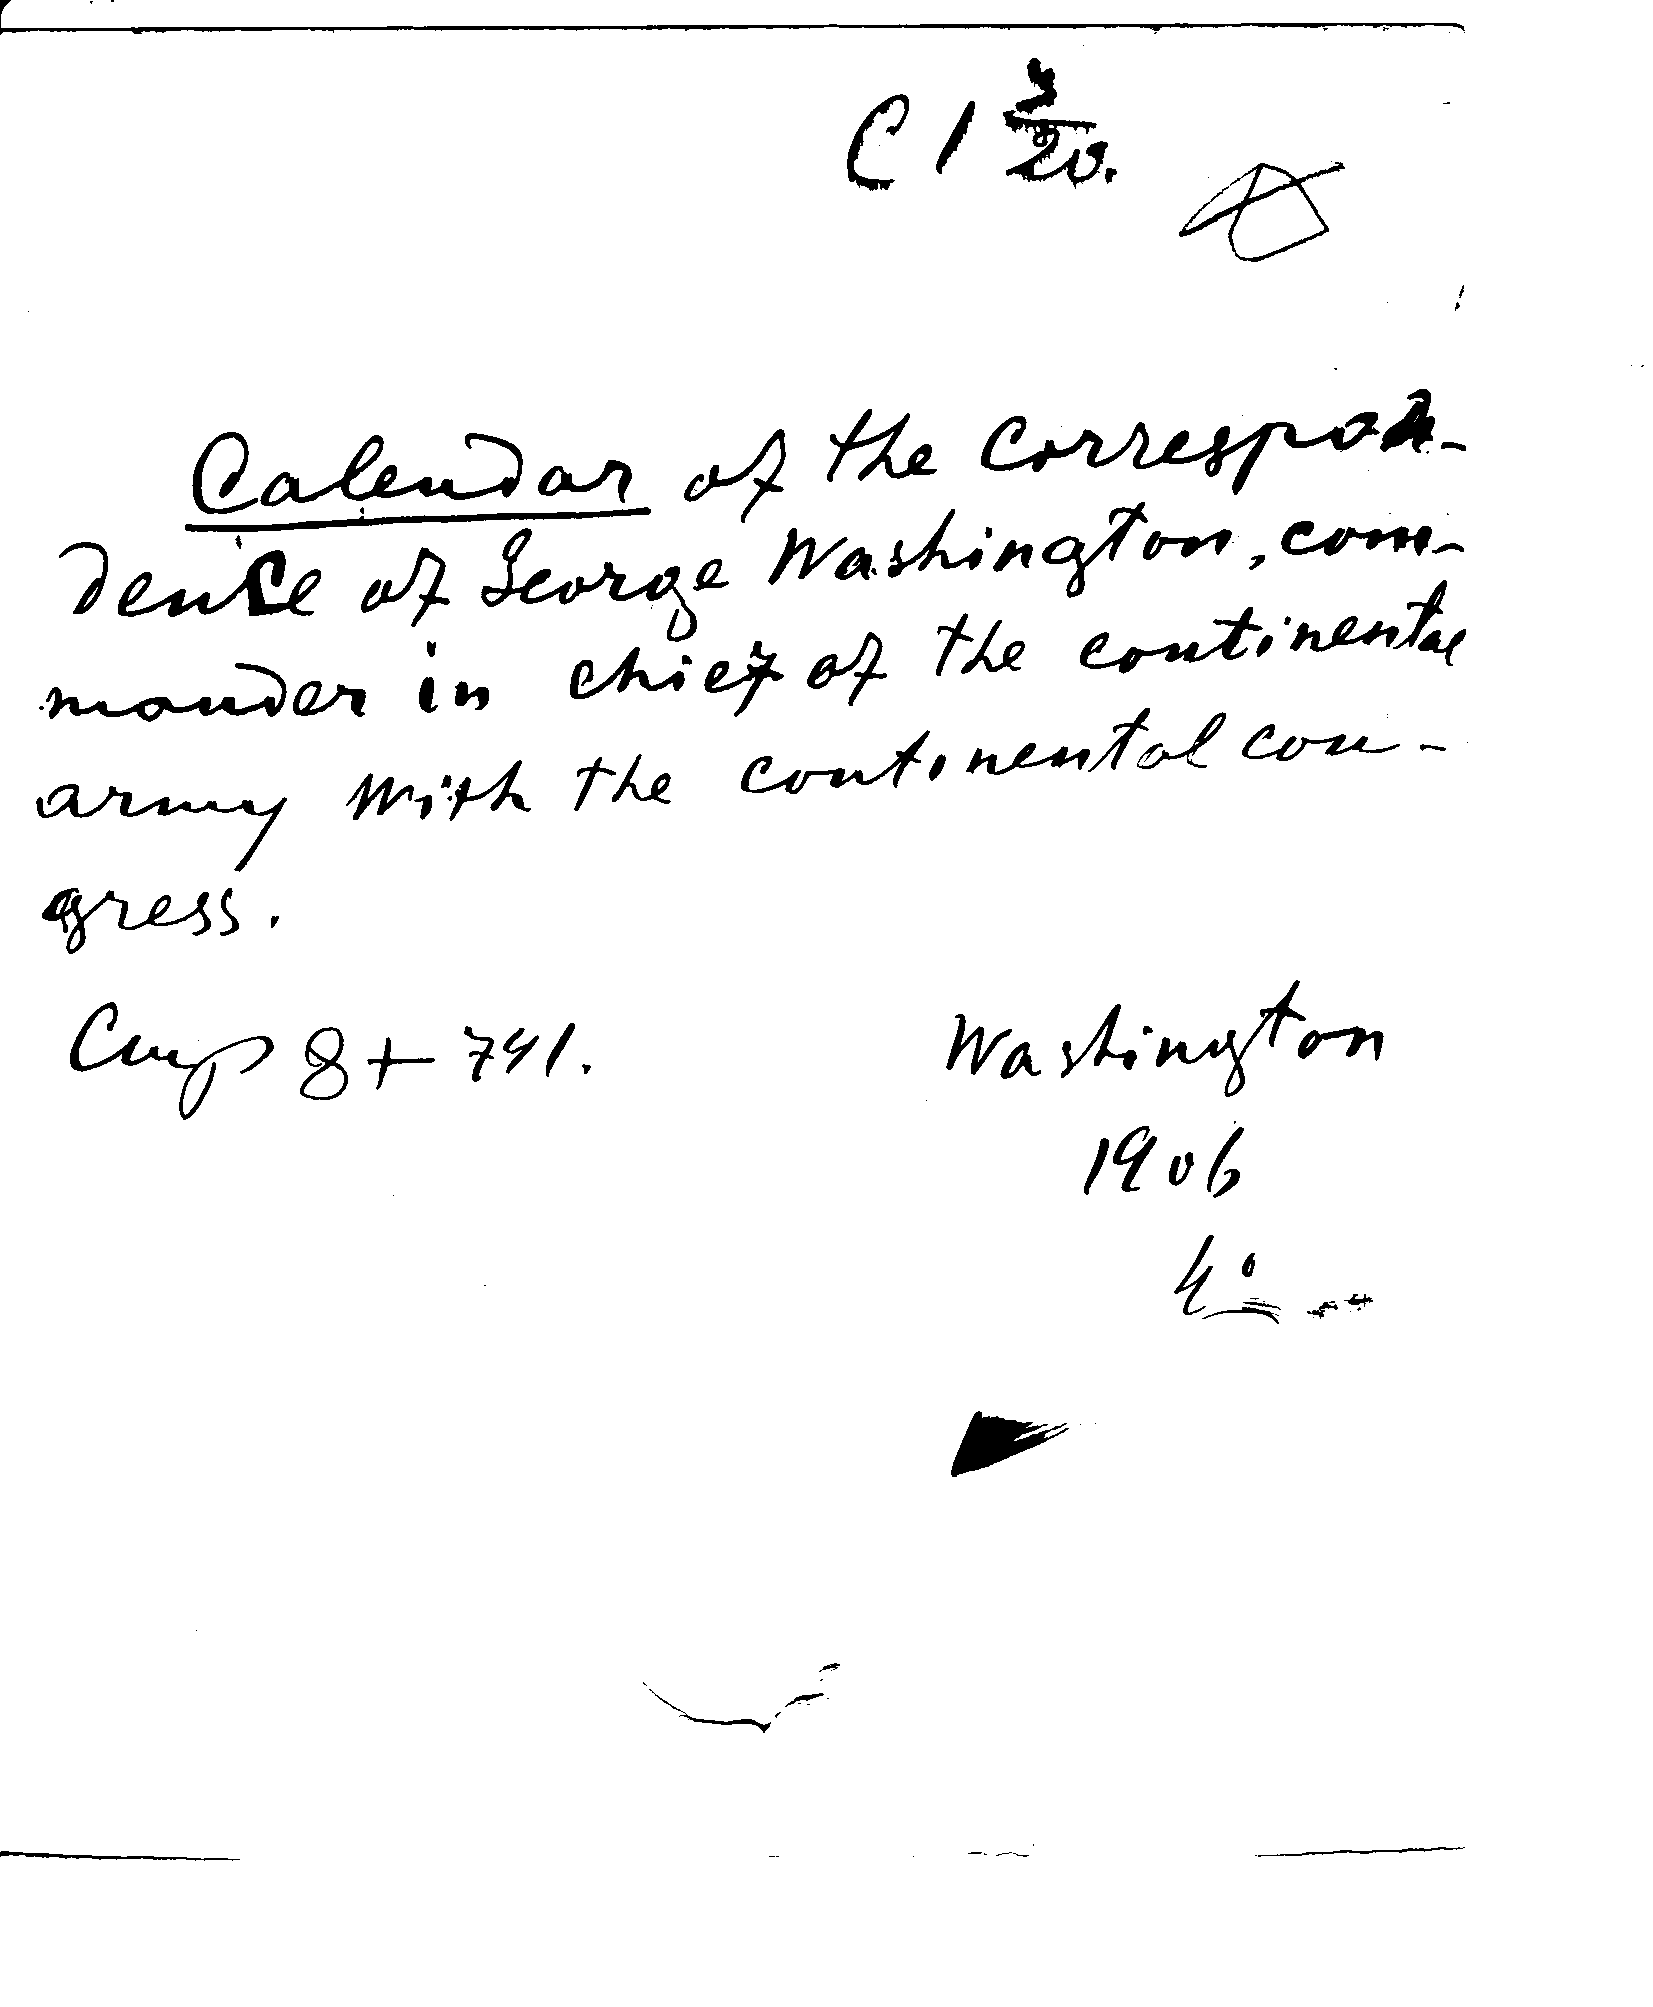 C 1 3/20.
Calendar of the correspon-
dence of George Washington, com-
mander in chief of the continental
army with the continental con-
gress.
8 + 741. Washington
1906
4°